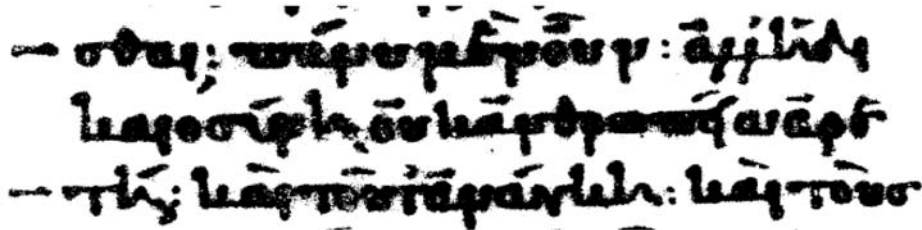 σθαι; πάνυ μὲν οὖν: ἀλλ' ἡ δι
καιοσύνη οὐκ ἀνθρωπεία ἀρε
τή; καὶ τοῦτ' ἀνάγκη: καὶ τοὺσ